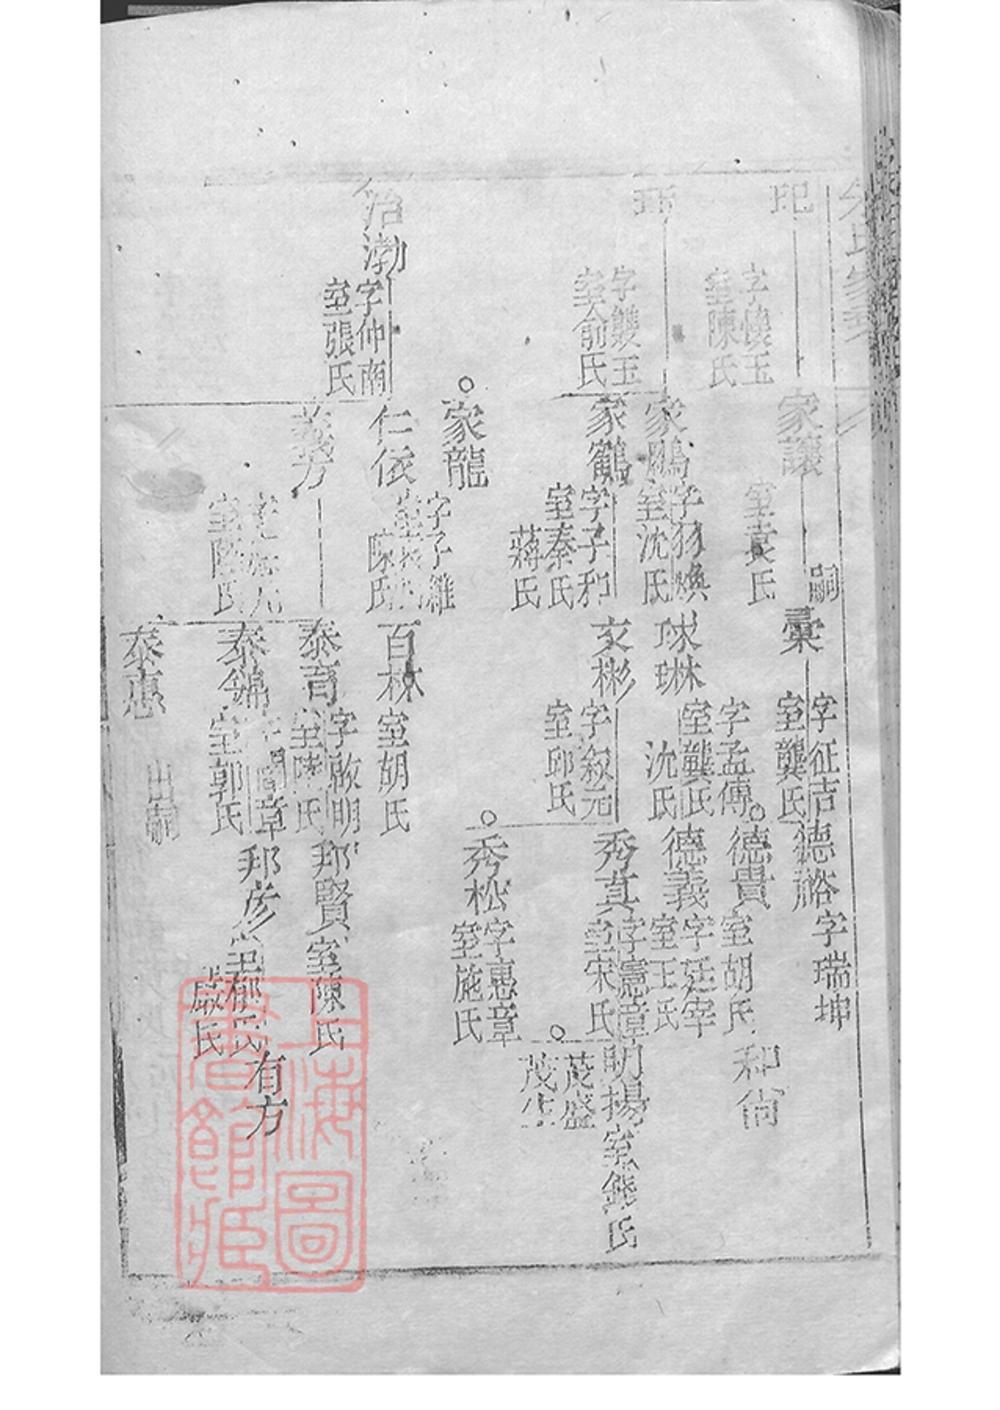 氏家
玘
字懷玉
室陳氏
家讓
室袁氏
嗣
彙
字征吉
室龔氏
德裕
字瑞坤
字雙玉
室俞氏
家鵬
字羽煥
室沈氏
球琳
字孟傳
室龔氏
沈氏
德貴
室胡氏
和尚
德義
字廷宰
室王氏
家鶴
字子和
室秦氏
蔣氏
文彬
字叙元
室邱氏
秀真
字憲章
室宋氏
明揚
室錢氏
茂盛
茂生
秀松
字惠章
室施氏
家龍
治渤
字仲南
室張氏
仁依
字子維
陳氏
百林
室胡氏
義方
室陸氏
泰育
字啟明
室陳氏
邦賢
室陳氏
泰錦
章
室郭氏
邦彥
氏
殷氏
有方
泰惠
出嗣
上海圖書館藏